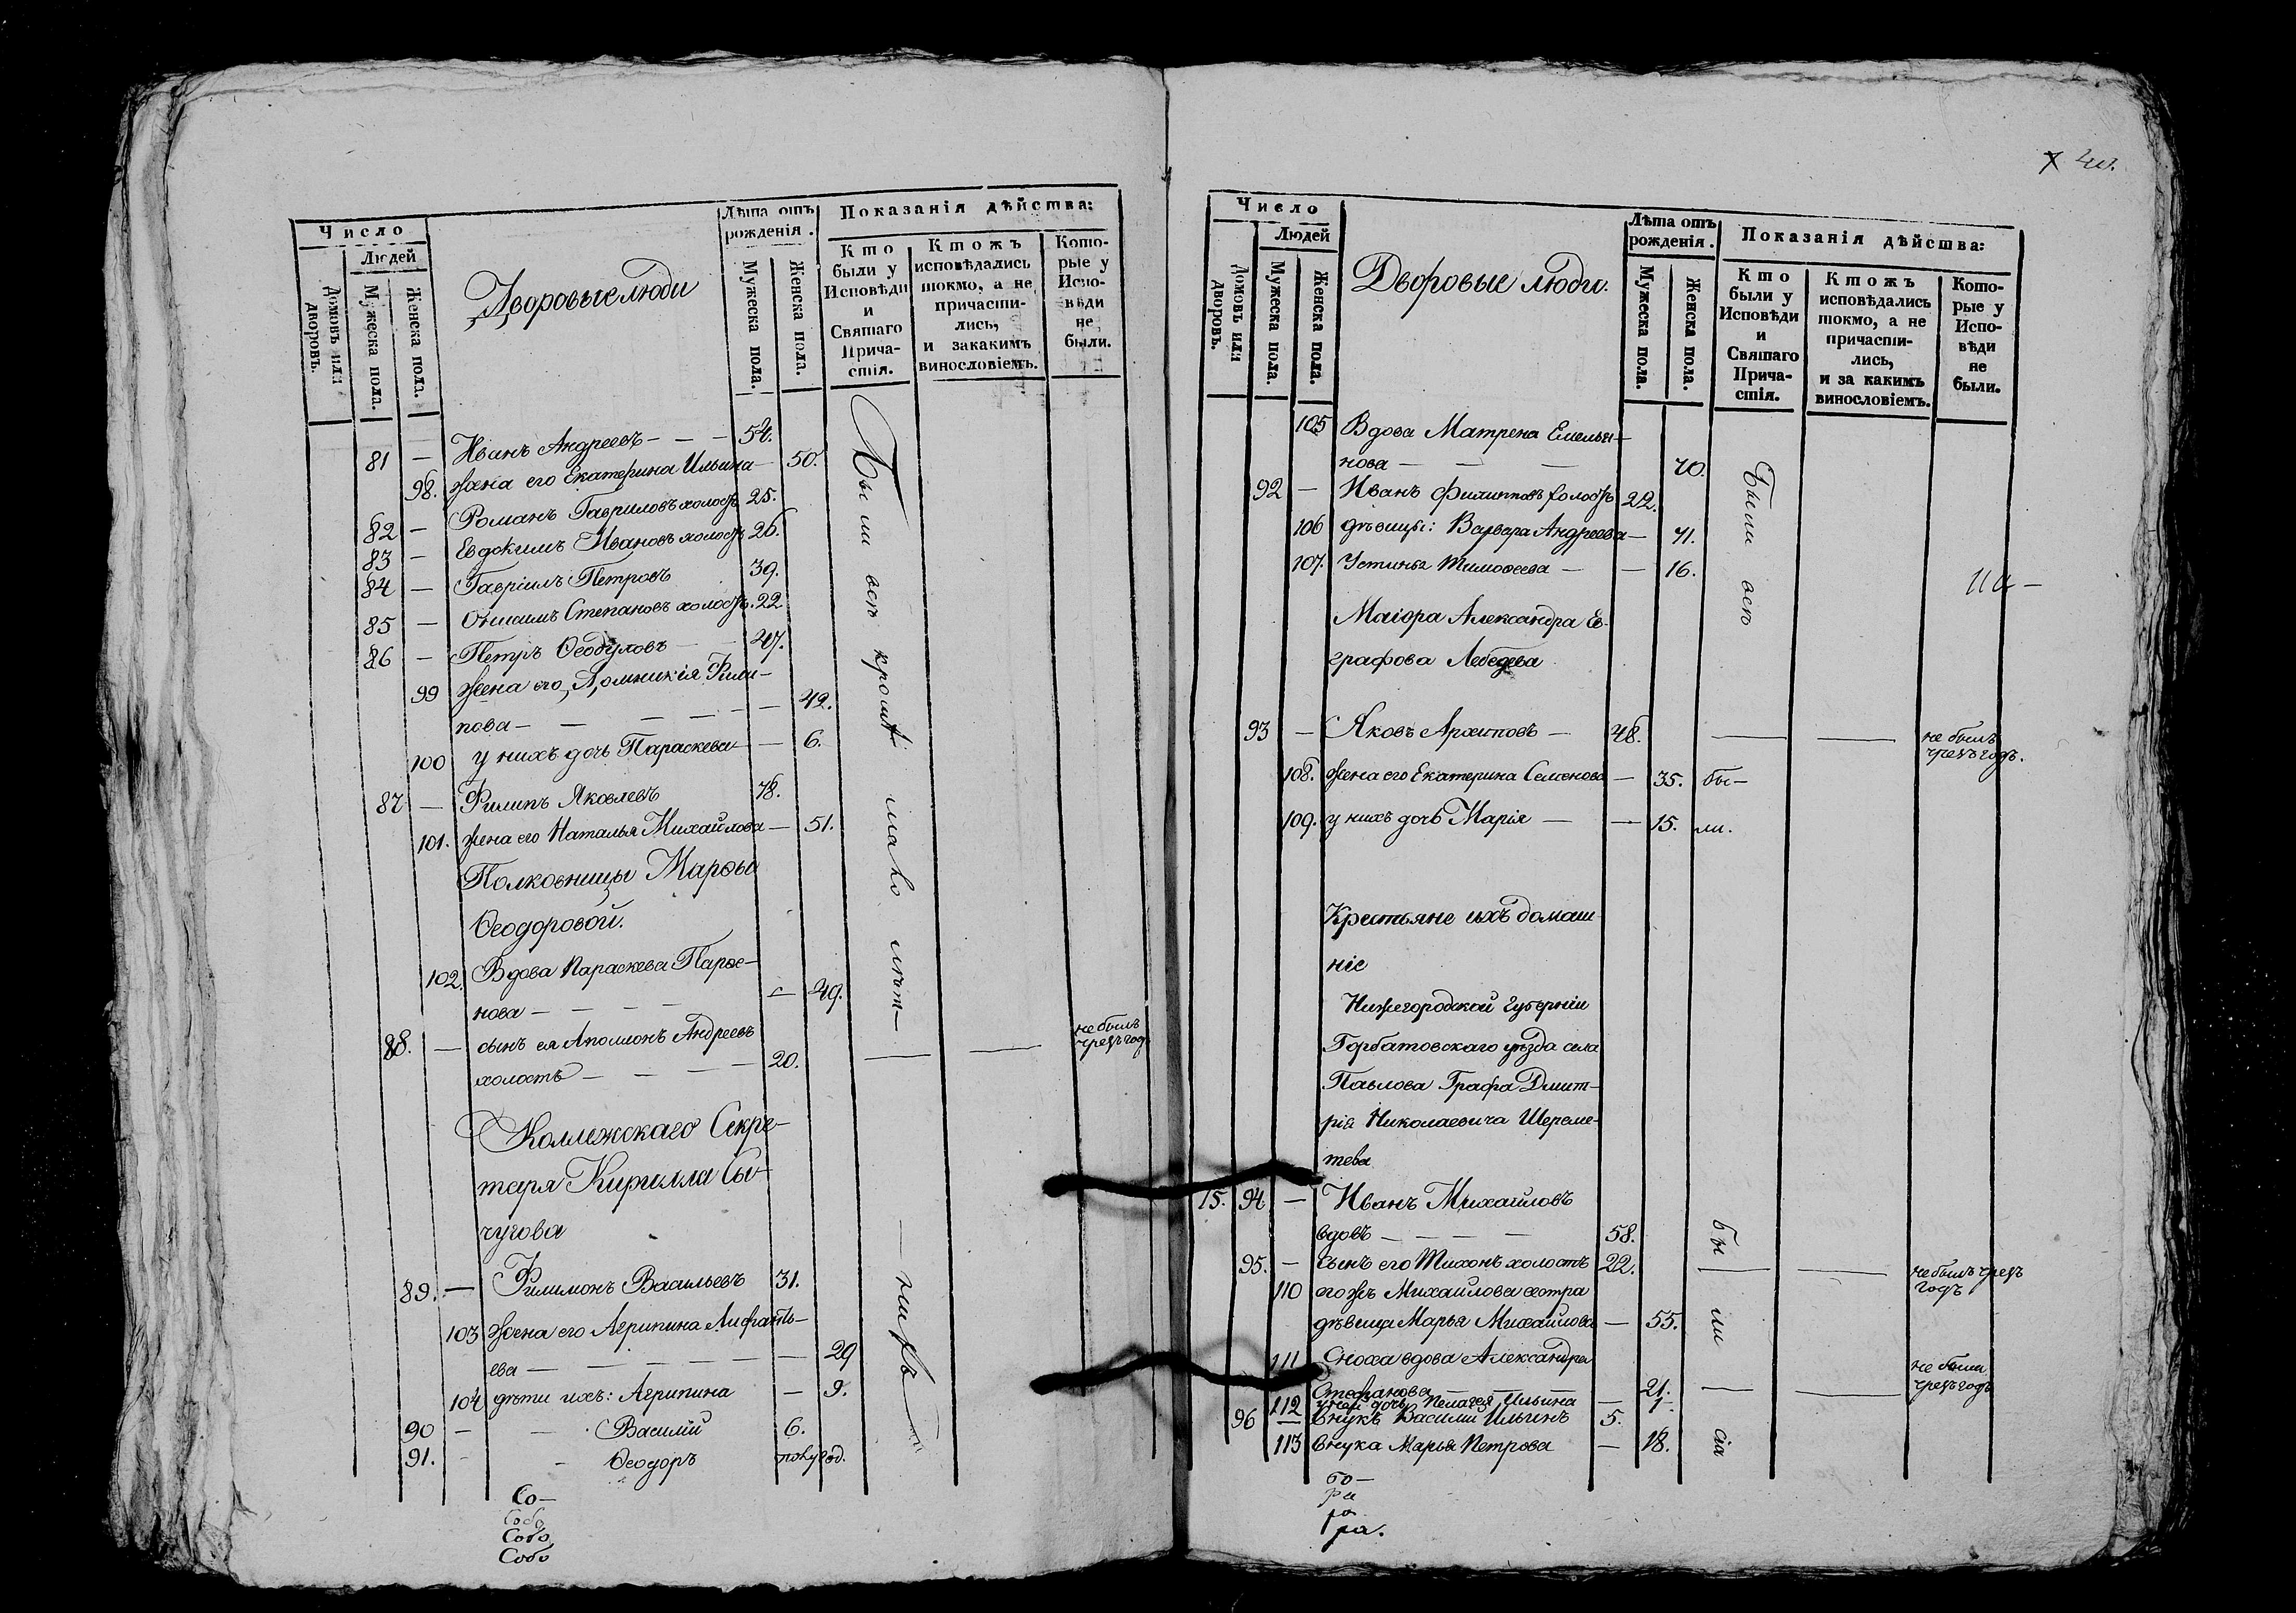 Число
Людей
Домовъ или дворовъ.
Мужеска пола.
Женска пола.
Дворовые люди
Лѣта отъ рожденія.
Мужеска пола.
Женска пола.
Показанія дѣйства:
Кто были у Исповѣди и Святаго Прича-стія.
Ктожъ исповѣдались токмо, а не причасти-лись, и закакимъ винословіемъ.
Кото-рые у Испо-вѣди не были.
81 — Иванъ Андреевъ — — — 54.
98. жена его Екатерина Ильина — 50.
82 — Романъ Гавриловъ холостъ 25.
83 — Евдокимъ Ивановъ холостъ 26.
84 — Гавріилъ Петровъ 39.
85 — Степановъ холостъ. 22
86 — Петръ Ѳеодуловъ — 47.
99 жена его, Домникія Фили-
пова — — — — — 42.
100 у нихъ дочь Параскева — — 6.
87 — Филипъ Яковлевъ 78.
101. жена его Наталья Михайлова — 51.
Полковницы Марѳы
Ѳеодоровой.
102. Вдова Параскева Парѳе-
нова — — — — — 49.
88. — сынъ ея Аполлонъ Андреевъ
холостъ — — — — 20. — — не былъ чрезъ год
Коллежскаго Секре-
таря Кирилла Сы-
чугова
89. — Филимонъ Васильевъ 31.
103 жена его Агрипина
ева — — — — — 29
104 дѣти ихъ: Агрипина — 9.
90 — — Василій 6.
91. — — Ѳеодоръ полугод.
Были всѣ кромѣ мало лѣт— —нихъ
Со—
Собо
Собо
Собо
40.
Число
Людей
Домовъ или дворовъ.
Мужеска пола.
Женска пола.
Дворовые люди.
Лѣта отъ рожденія.
Мужеска пола.
Женска пола.
Показанія дѣйства:
Кто были у Исповѣди и Святаго Прича-стія.
Ктожъ исповѣдались токмо, а не причасти-лись, и за какимъ винословіемъ.
Кото-рые у Испо-вѣди не были.
105 Вдова Матрена Емелья—
нова — — — 70.
92 — Иванъ Филипповъ холостъ 22.
106 дѣвицы: Варвара Андреева — 71.
107. Устинья Тимоѳеева — — 16.
Были всѣ
Маіора Александра Ев-
графова Лебедева
93 — Яковъ Архиповъ — 48. — — не былъ чрезъ годъ.
108. жена его Екатерина Семенова — 35. бы—
109. у нихъ дочь Марія — — 15. ли.
Крестьяне ихъ домаш-
ніе
Нижегородской Губерніи
Горбатовскаго уѣзда села
Павлова Графа Дмит-
рія Николаевича Шереме-
тева
15. 94 — Иванъ Михайловъ
вдовъ — — — — 58.
95. — сынъ его Тихонъ холостъ 22. — — не былъ чрезъ годъ
110 его жъ Михайлова сестра
дѣвица Марья Михайлова — 55.
111 Сноха вдова Александра
Стефанова — — 21. — — не была чрезъ годъ
112 у ней дочь Пелагея Ильина — 1.
96 — Внукъ Василій Ильинъ 5.
113 внука Марья Петрова — 18.
бы ли сіа
бо—
ра
ра
ра.